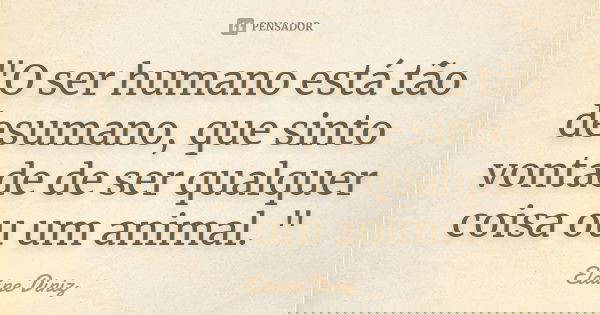 PENSADOR
"O ser humano está tão
desumano, que sinto
vontade de ser qualquer
coisa ou um animal. "
Elaine Diniz